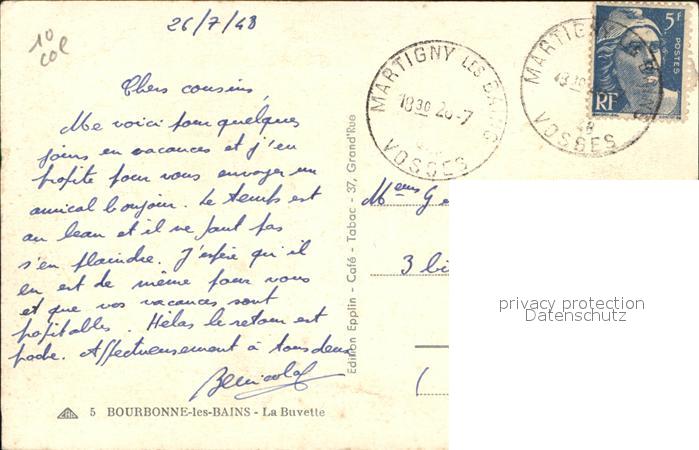 26/7/48
10
col
Chers cousins,
Me voici pour quelques
jours en vacances et j'en
profite pour vous envoyer un
amical bonjour. Le temps est
au beau et il ne faut pas
s'en plaindre. J'espère qu'il
en est de même pour vous
et que vos vacances sont
profitables. Hélas le retour est
proche. Affectueusement à tous deux
5 BOURBONNE-les-BAINS - La Buvette
Edition Epplin - Café - Tabac - 37, Grand'Rue
MARTIGNY LES BAINS
18 30 26-7
VOSGES
MARTIGNY LES BAINS
18 30
48
VOSGES
5F
POSTES
RF
Mens G
3 bi
(
privacy protection
Datenschutz